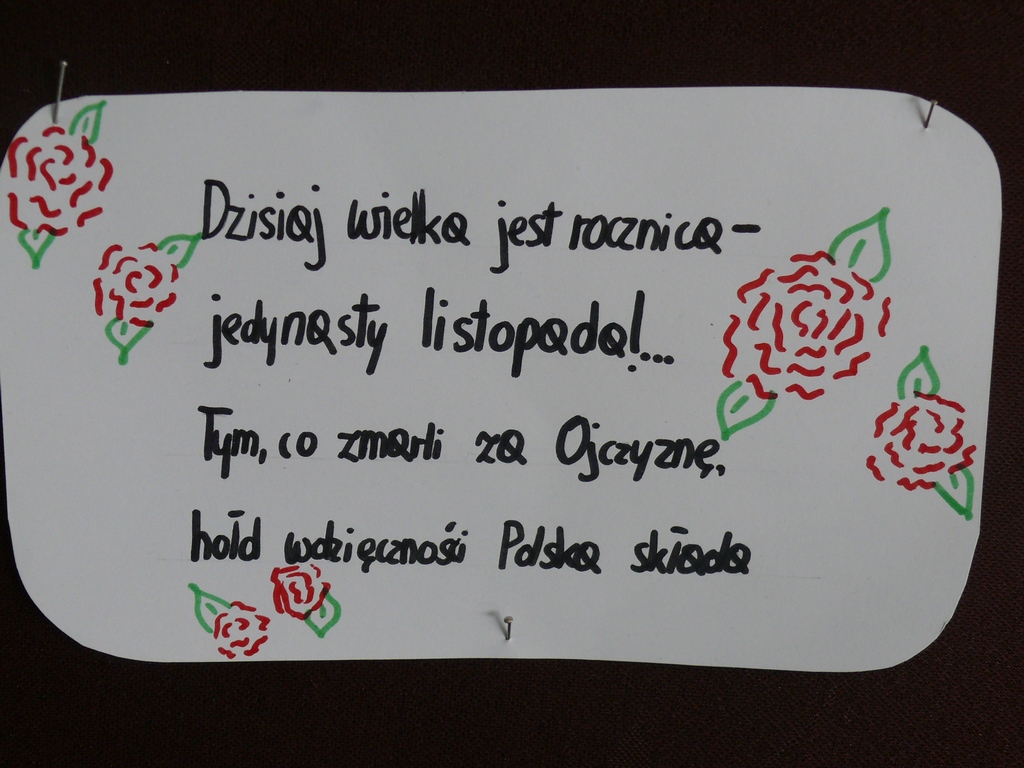 Dzisiaj wielka jest rocznica -
jedynasty listopada!...
Tym, co zmarli za Ojczyznę,
hołd wdzięczności Polska składa